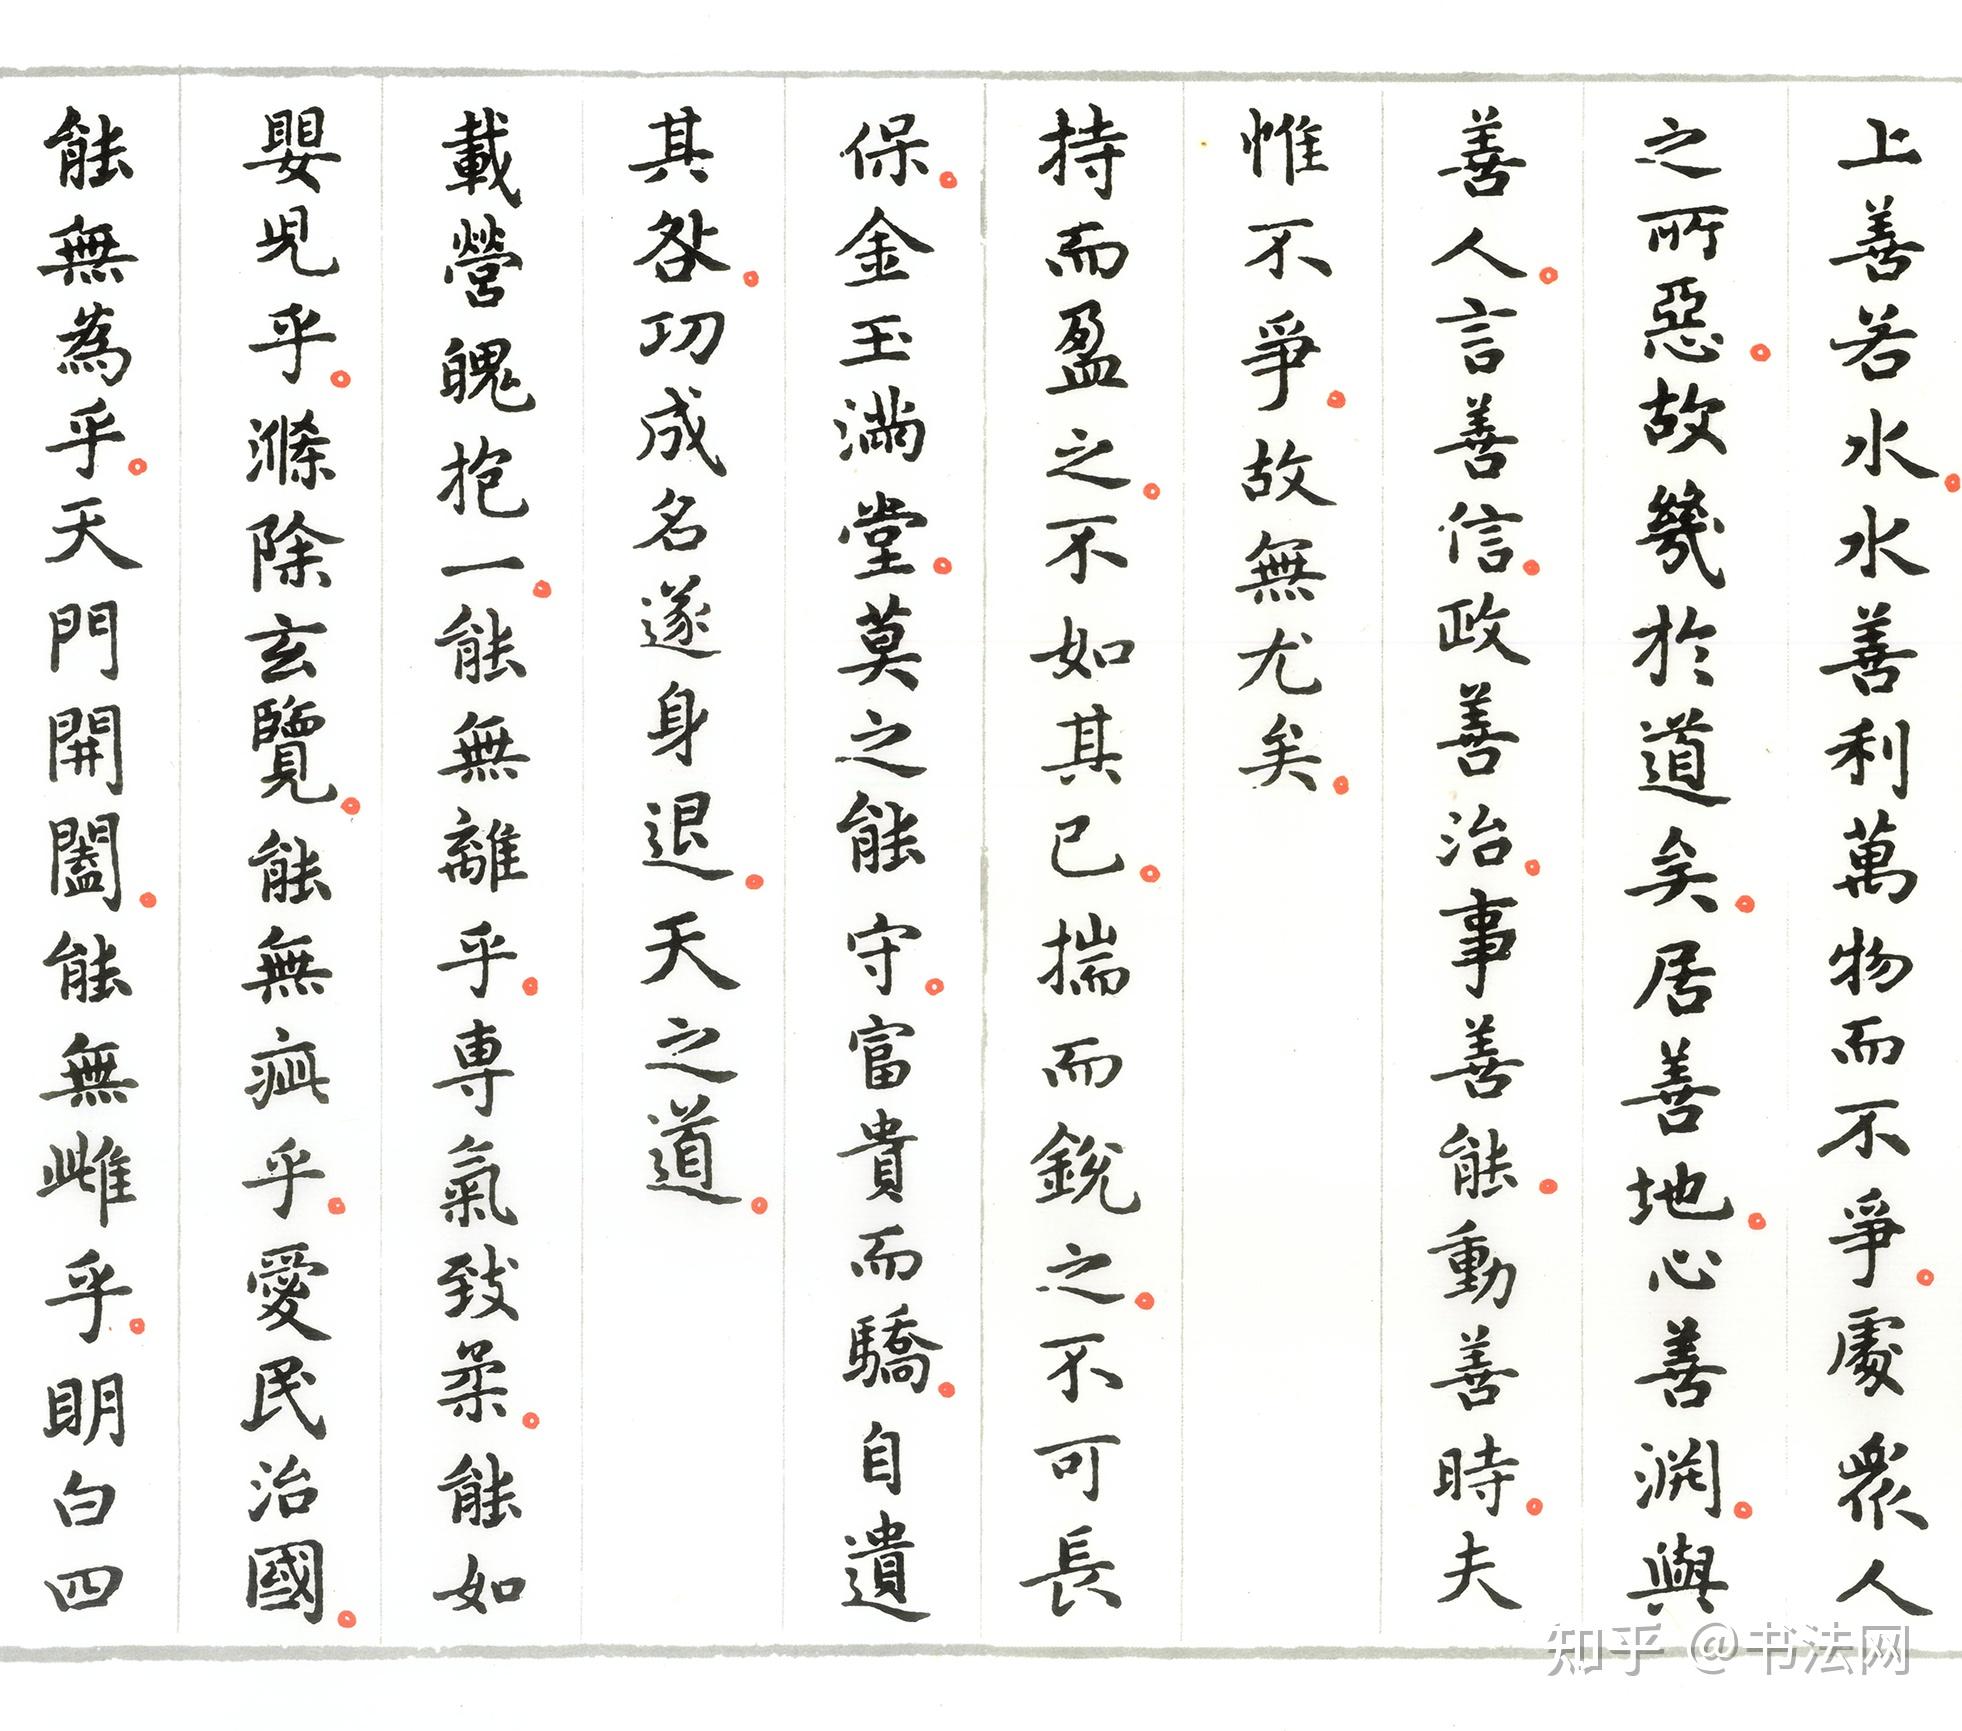 上善若水。水善利萬物而不爭。處眾人
之所惡。故幾於道矣。居善地。心善淵。與
善人。言善信。政善治。事善能。動善時。夫
惟不爭。故無尤矣。
持而盈之。不如其已。揣而銳之。不可長
保。金玉滿堂。莫之能守。富貴而驕。自遺
其咎。功成名遂身退。天之道。
載營魄抱一。能無離乎。專氣致柔。能如
嬰兒乎。滌除玄覽。能無疵乎。愛民治國。
能無為乎。天門開闔。能無雌乎。明白四
知乎 @书法网